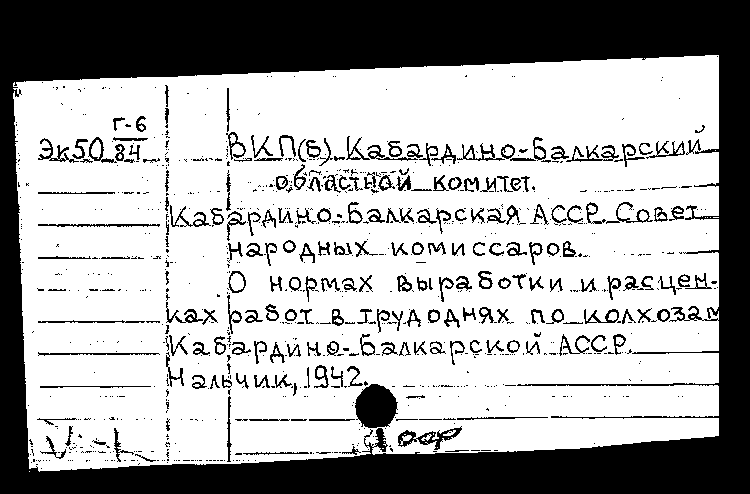 Г-6
Эк50 84 ВКП(б). Кабардино-Балкарский
областной комитет.
Кабардино-Балкарская АССР. Совет
народных комиссаров.
О нормах выработки и расцен-
ках работ в трудоднях по колхозам
Кабардино-Балкарской АССР.
Нальчик, 1942.